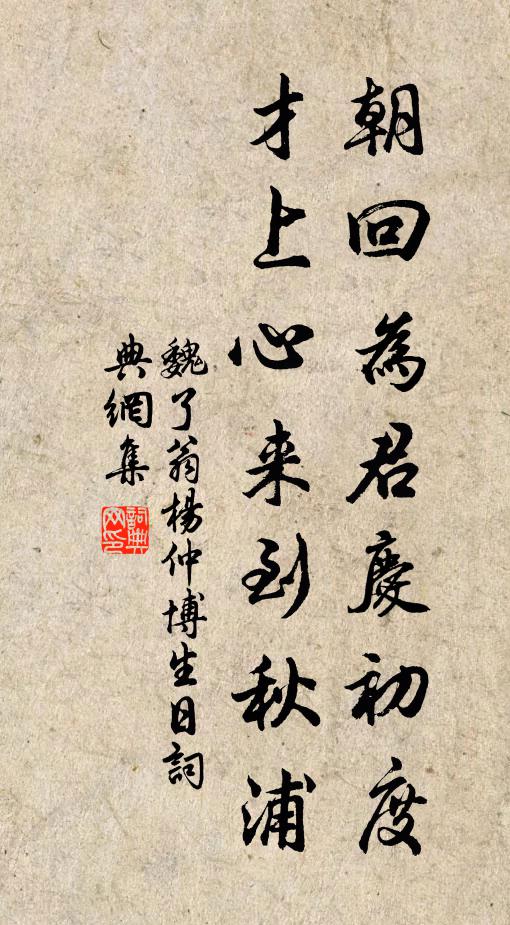 朝回為君慶初度
才上心来到秋浦
魏了翁楊仲博生日詞
典網集
詞典网印